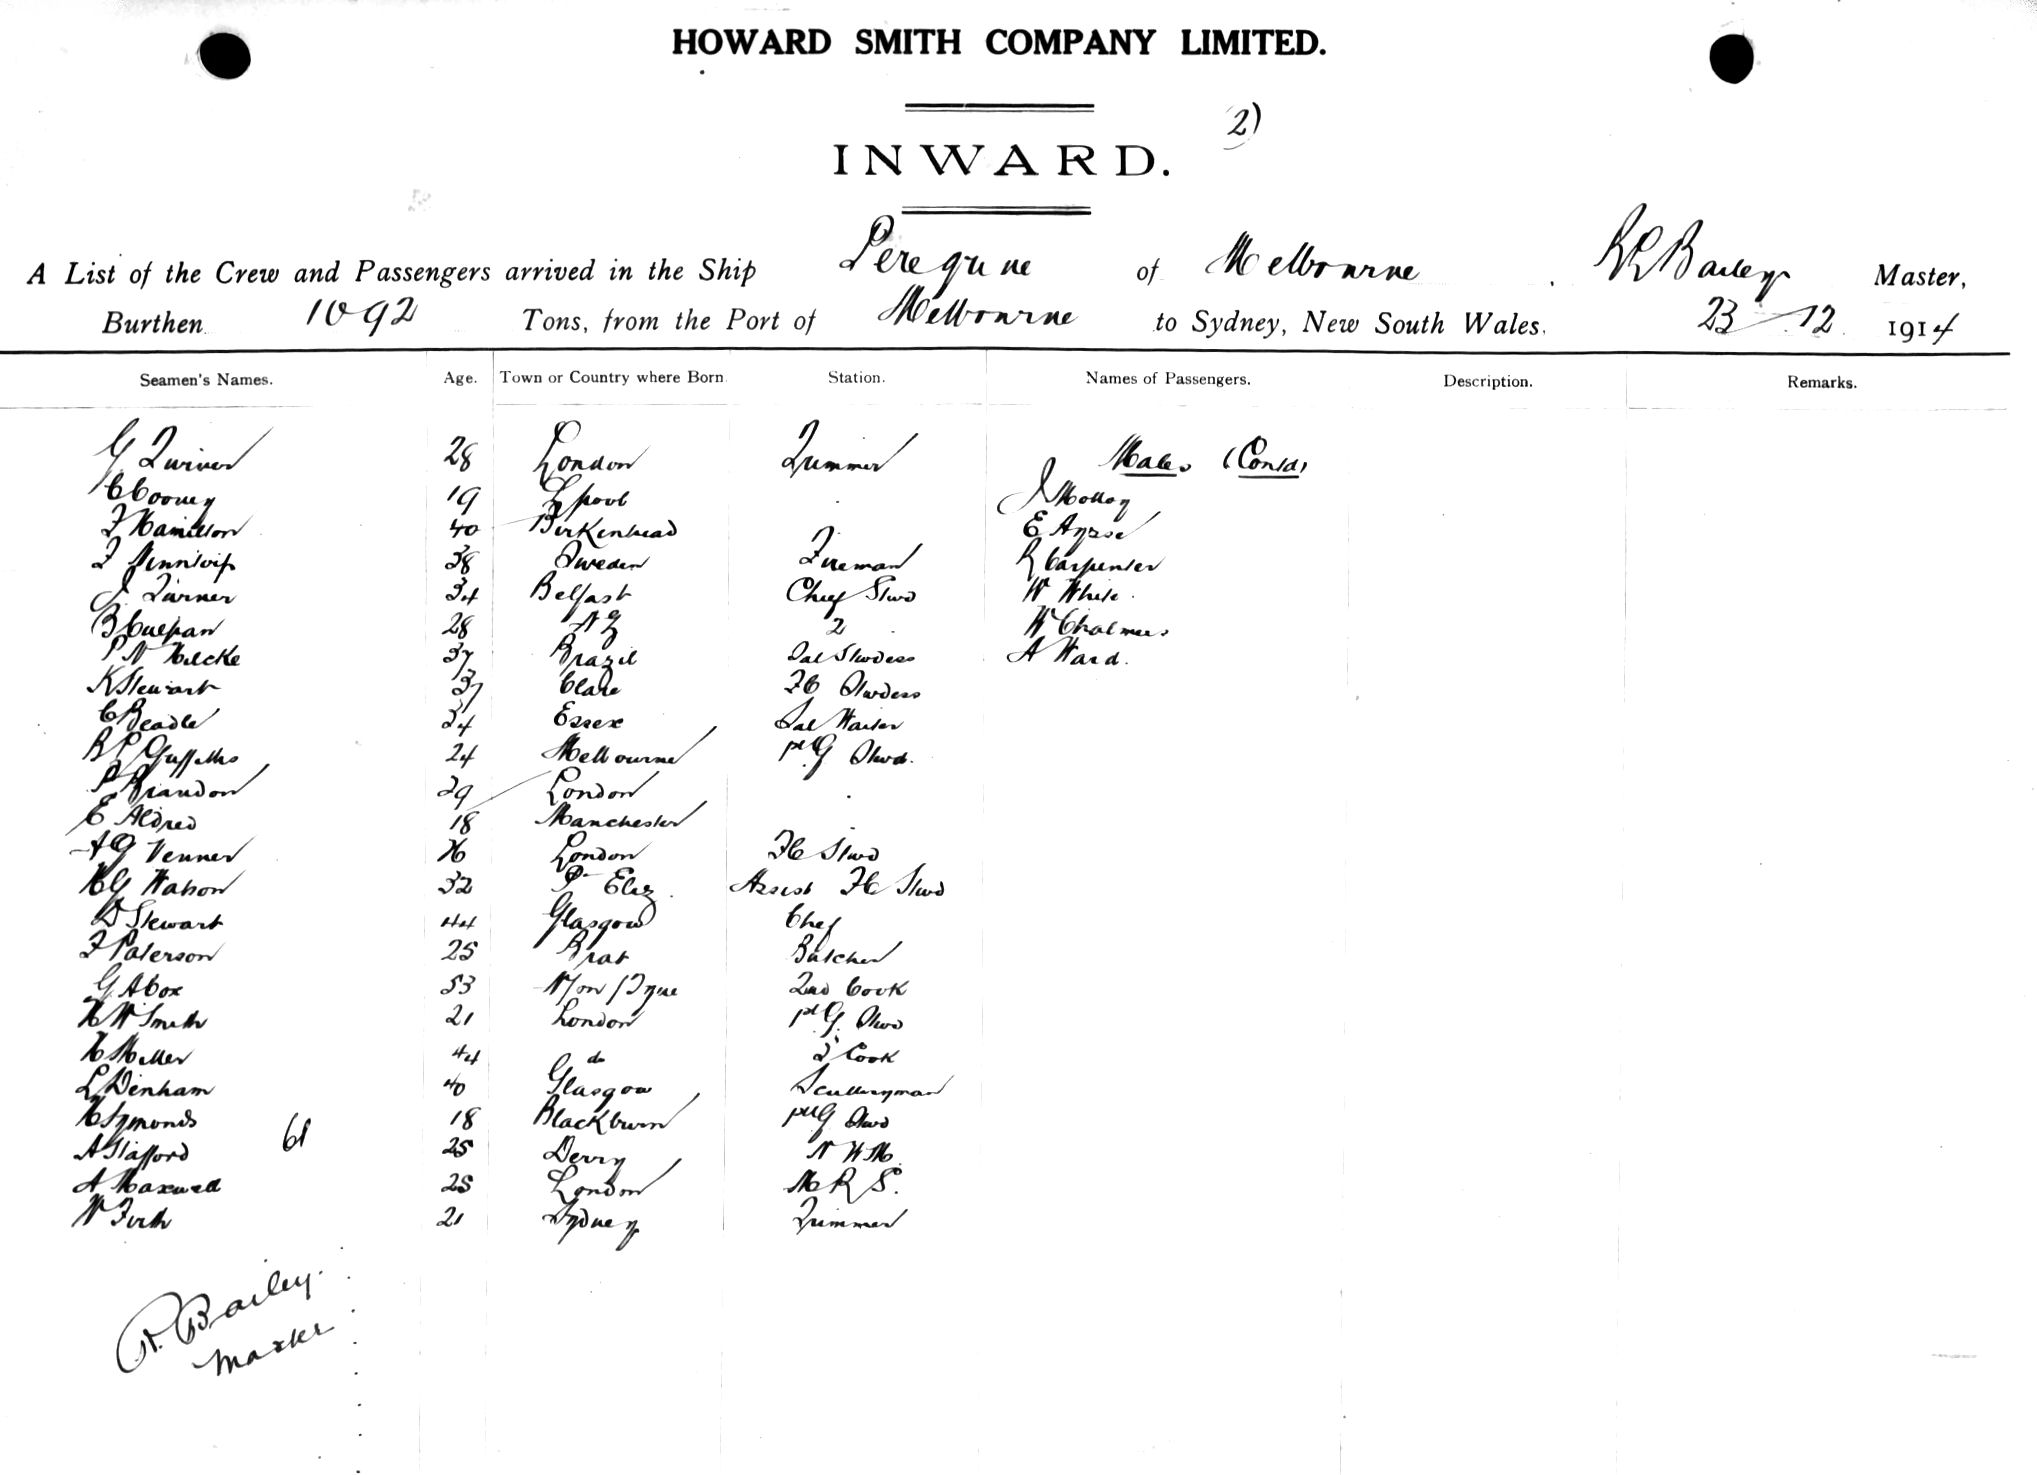 HOWARD SMITH COMPANY LIMITED.
2)
INWARD.
A List of the Crew and Passengers arrived in the Ship Peregrine of Melbourne, Bailey Master,
Burthen 1092 Tons, from the Port of Melbourne to Sydney, New South Wales. 23-12 1914
Seamen's Names. Age. Town or Country where Born. Station. Names of Passengers. Description. Remarks.
G 28 London Trimmer Males (Contd)
C Cooney 19 L'pool J Molloy
F Hamilton 40 Birkenhead E
F 38 Sweden Fireman R Carpenter
J Turner 34 Belfast Chief Stwd W White
B 28 N Z 2 W Chalmers
37 Brazil Sal Stwdess A Ward.
K Stewart 37 Clare FC Stwdess
C Beadle 34 Essex Sal Waiter
R P Griffiths 24 Melbourne Stwd.
P Brandon 29 London
E Aldred 18 Manchester
A G Venner London FC Stwd
H G Watson 32 Pt Eliz. Assist FC Stwd
D Stewart 44 Glasgow Chef
F Paterson 25 Butcher
G A Cox 53 N/on/Tyne 2nd Cook
H W Smith 21 London Stwd
H Miller 44 do Cook
L Denham 40 Glasgow Sculleryman
H Symonds 18 Blackburn Stwd
A Stafford 61 25 Derry N W M.
A Maxwell 25 London M R S.
W Firth 21 Sydney Trimmer
R. Bailey.
Master